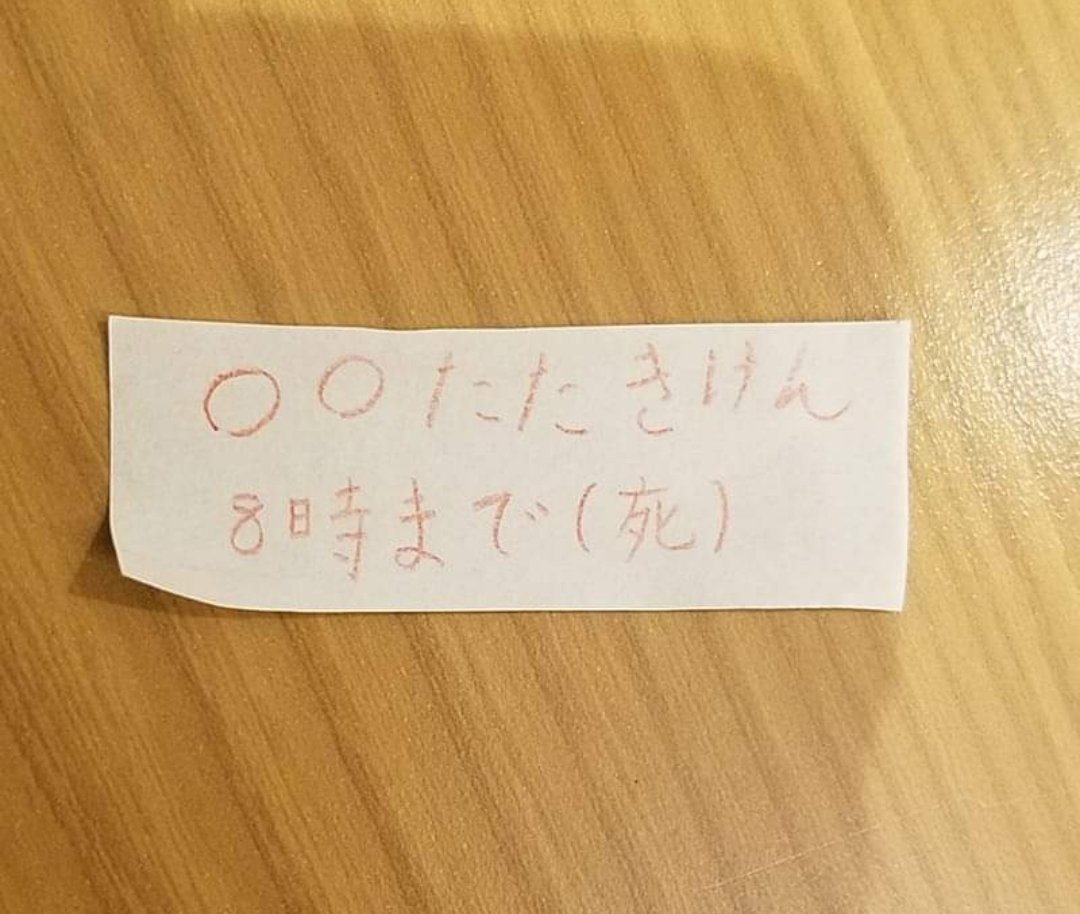 〇〇たたきけん
8時まで(死)